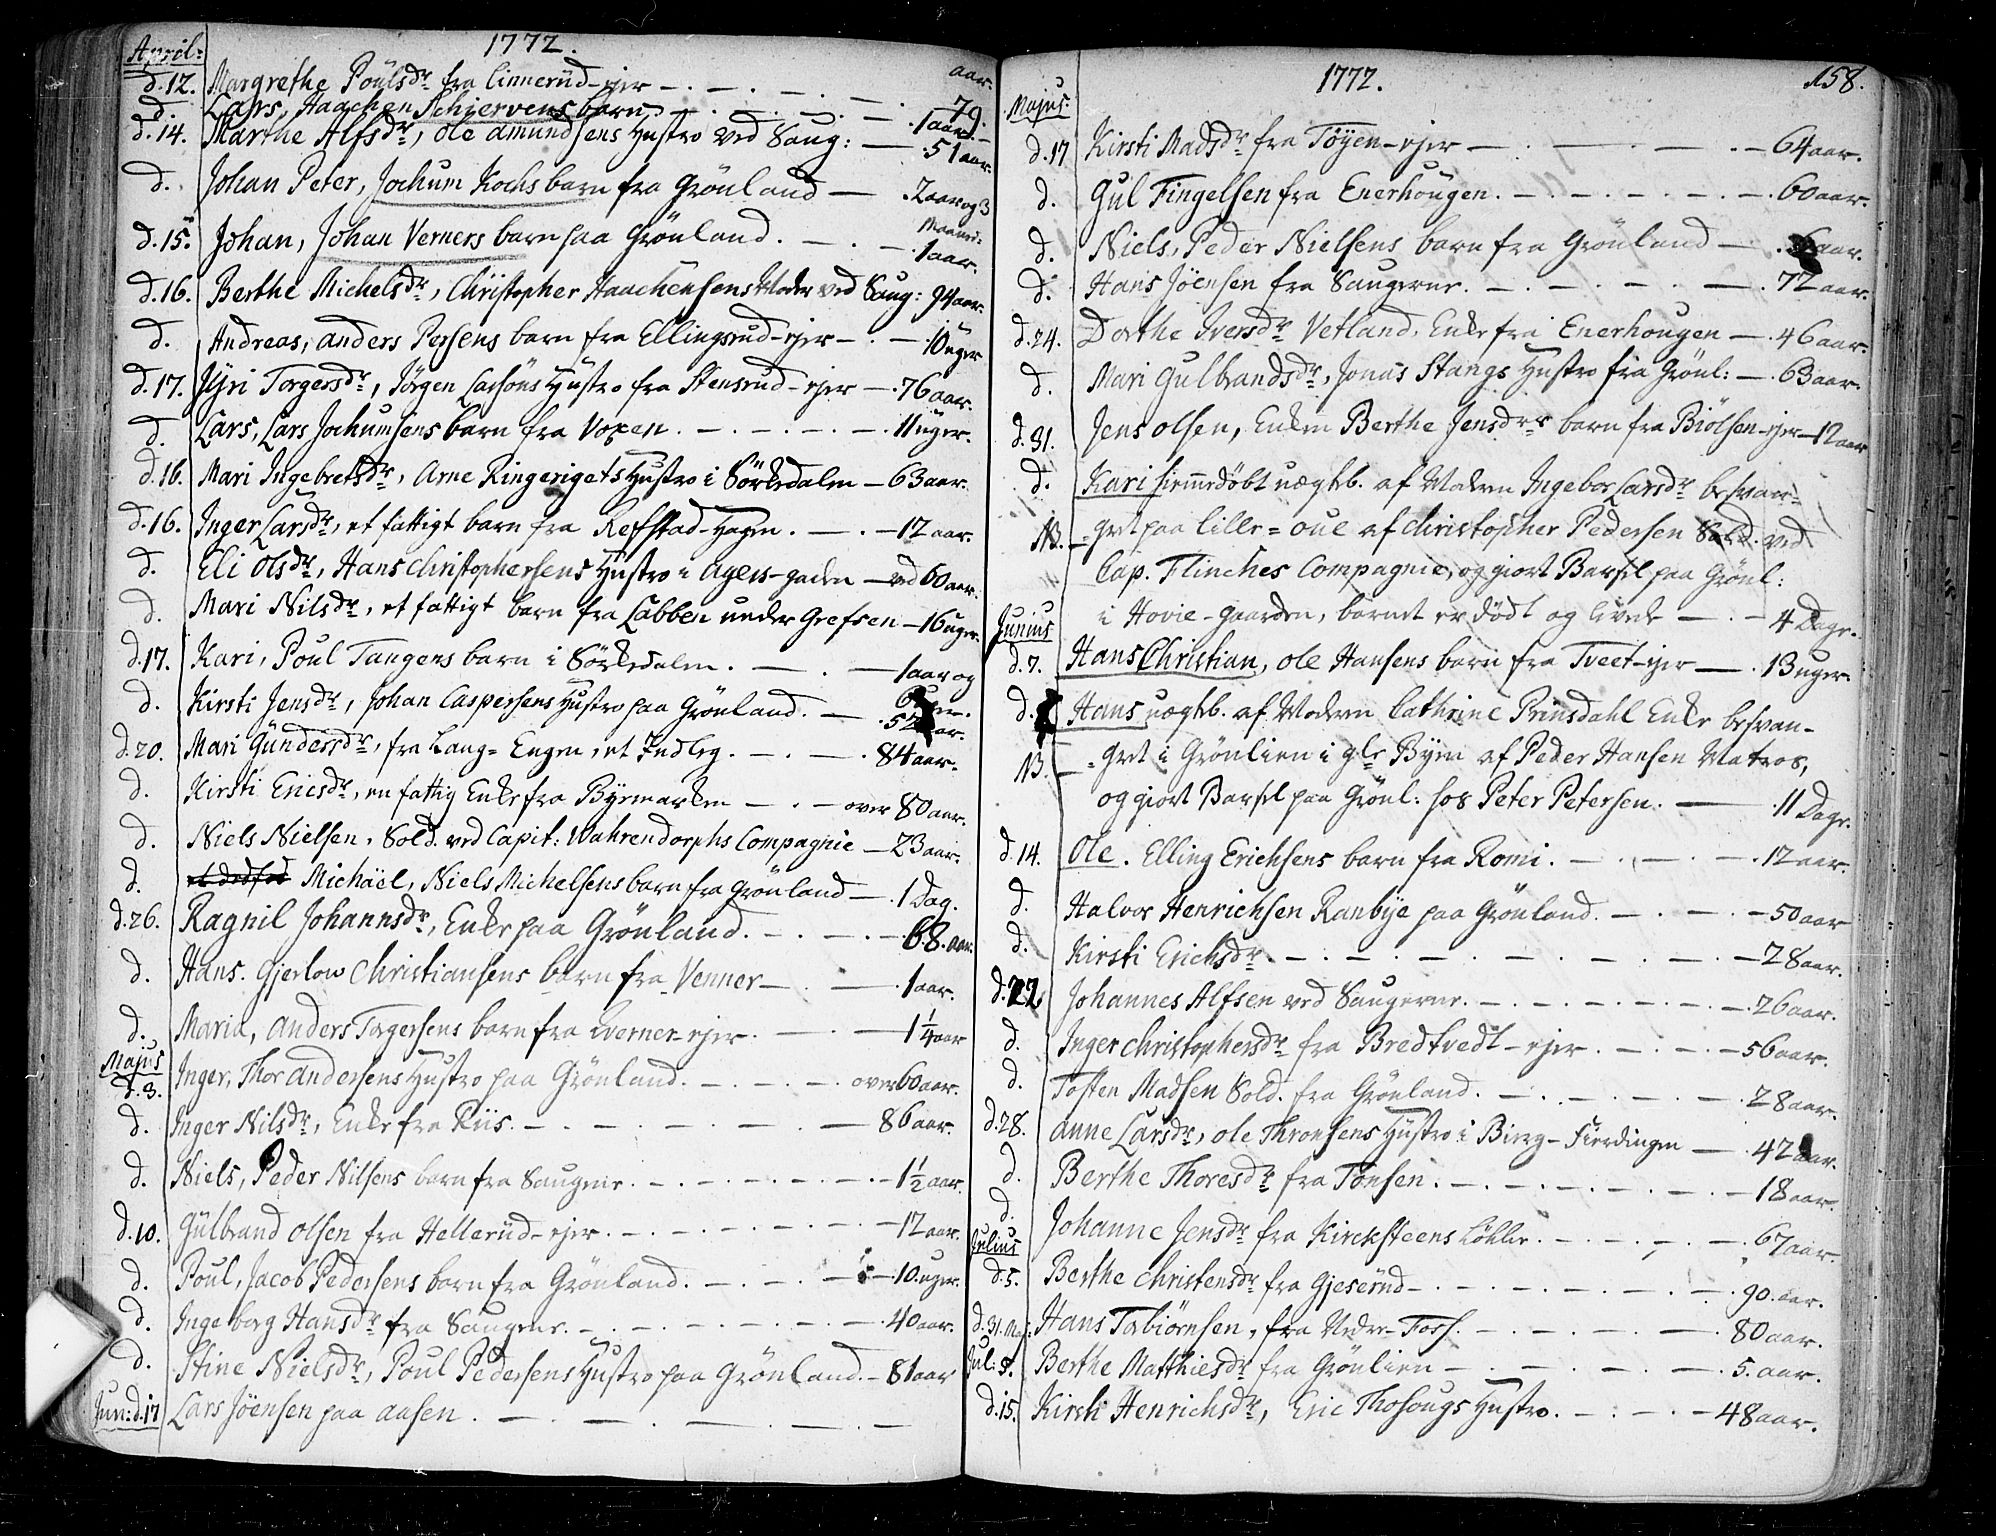 April: 1772. aar.
d.12. Margrethe Poulsdr fra Linnerud-ejer — . — . — . 79.
d. Lars, Haachen Schiervens barn — . — . — 1 aar.
d.14. Marthe Alfsdr, Ole Amundsens Hustro ved Saug: — .51 aar.
d. Johan Peter, Jochum Kochs barn fra Grönland — .2 aar og 3 Maaned:
d.15. Johan, Johan Verners barn paa Grönland. — . — .1 aar.
d.16. Berthe Michelsdr, Christopher Haachensens Moder ved Saug: 94 aar.
d. Andreas, Anders Persens barn fra Ellingsrud-ejer — . — 10 uger
d.17. Siri Torgersdr, Jörgen Larsöns Hustro fra Stensrud-ejer — .76 aar.
d. Lars, Lars Jochumsens barn fra Voxen. — . — . — . — .11 uger.
d.16. Mari Ingebretsdr, Arne Ringerigets Hustro i Sörkedalen — 63 aar.
d.16. Inger Larsdr, et fattigt barn fra Refstad-Hagen. — . — 12 aar.
d. Eli Olsdr, Hans Christophersens Hustro i Agers-gaden — ved 60 aar.
d. Mari Nilsdr, et fattigt barn fra Labben under Grefsen — 16 uger.
d.17. Kari, Poul Tangens barn i Sörkedalen. — . — 1 aar og
d. Kirsti Jensdr, Johan Caspersens Hustro paa Grönland. — .52 aar.
d.20. Mari Gundersdr, fra Lang-Engen, et Indleg. — . — . 84 aar.
d. Kirsti Ericsdr, en fattig Enke fra Byemarken — . — over 80 aar.
d. Niels Nielsen, Sold. ved Capit: Wahrendorphs Compagnie — 23 aar.
d. Michäel, Niels Michelsens barn fra Grönland — .1 Dag.
d.26. Ragnil Johannsdr, Enke paa Grönland. — . — . — 68. aar.
d. Hans. Gjerlow Christiansens barn fra Venner — . — .1 aar.
d. Maria, Anders Torgersens barn fra Qverner-ejer. — . — 1 1/4 aar
Majus
d.3. Inger, Thor Andersens Hustro paa Grönland. — . — . — over 60 aar.
d. Inger Nilsdr, Enke fra Riis. — . — . — . — . — 86 aar.
d. Niels, Peder Nilsens barn fra Saugene. — . — . — . — 1 1/2 aar.
d.10. Gulbrand Olsen fra Hellerud-ejer. — . — . — . — 12 aar.
d. Poul, Jacob Pedersens barn fra Grönland. — . — . — .10. uger.
d. Ingeborg Hansdr fra Saugene. — . — . — . — . 40 aar.
d. Stine Nielsdr, Poul Pedersens Hustro paa Grönland. — 81 aar
Jun: d.17 Lars Jöensen paa Aasen. — . — . — . — . —
1772. 158.
Majus.
d.17 Kirsti Madsdr fra Töyen-ejer — . — . — . — 64 aar.
d. Gul Fingelsen fra Enerhougen. — . — . — . — .60 aar.
d. Niels, Peder Nielsens barn fra Grönland — . aar.
d. Hans Jöensen fra Saugerne. — . — . — . — .72 aar.
d.24. Dorthe Iversdr Vetland, Enke fra Enerhougen — .46 aar.
d. Mari Gulbrandsdr, Jonas Stangs Hustro fra Grönl: — .63 aar.
d.31. Jens Olsen, Enken Berthe Jensdrs barn fra Biölsen-ejer — 12 aar
d. Kari hiemmedöbt uægteb. af Moderen Ingebor Larsdr besvan-
NB. -gret paa Lille-Oue af Christopher Pedersen Sold. ved
Cap. Flinches Compagnie, og giort Barsel paa Grönl:
i Hovie-gaarden, barnet er dödt og levede — . — 4 Dage.
Junius
d.7. Hans Christian, Ole Hansens barn fra Tveet-ejer — . 13 uger.
d. Hans uægteb. af Moderen Cathrine Prinsdahl Enke besvan-
NB. -gret i Grönlien i gle Byen af Peder Hansen Matros,
og giort Barsel paa Grönl: hos Peter Petersen. — .11 Dage.
d.14. Ole. Elling Erichsens barn fra Romi. — . — . — .12 aar.
d. Halvor Henrichsen Ranbye paa Grönland. — . — . — 50 aar
d. Kirsti Erichsdr. — . — . — . — . — . — . — 28 aar.
d.22. Johannes Alfsen ved Saugerne. — . — . — . — .26 aar.
d. Inger Christophersdr fra Bredtvedt-ejer. — . — . — 56 aar.
d. Tosten Madsen Sold. fra Grönland. — . — . — . — .28 aar.
d.28. Anne Larsdr, Ole Thronsens Hustro i Bierg-Fierdingen — .42 aar.
d. Berthe Thoresdr fra Tonsen. — . — . — . — . — 18 aar.
d. Johanne Jensdr fra Kircksteens Løkke. — . — . — .67 aar
Julius
d.5. Berthe Christensdr fra Gjeserud — . — . — . — . 90. aar.
d.31. Maj: Hans Torbiörnsen, fra Nedre-Foss. — . — . — . 80 aar.
Jul: 5. Berthe Matthiesdr fra Grönlien — . — . — . — . 5. aar.
d.15. Kirsti Henrichsdr, Eric Thosougs Hustro. — . — . — 48 aar.